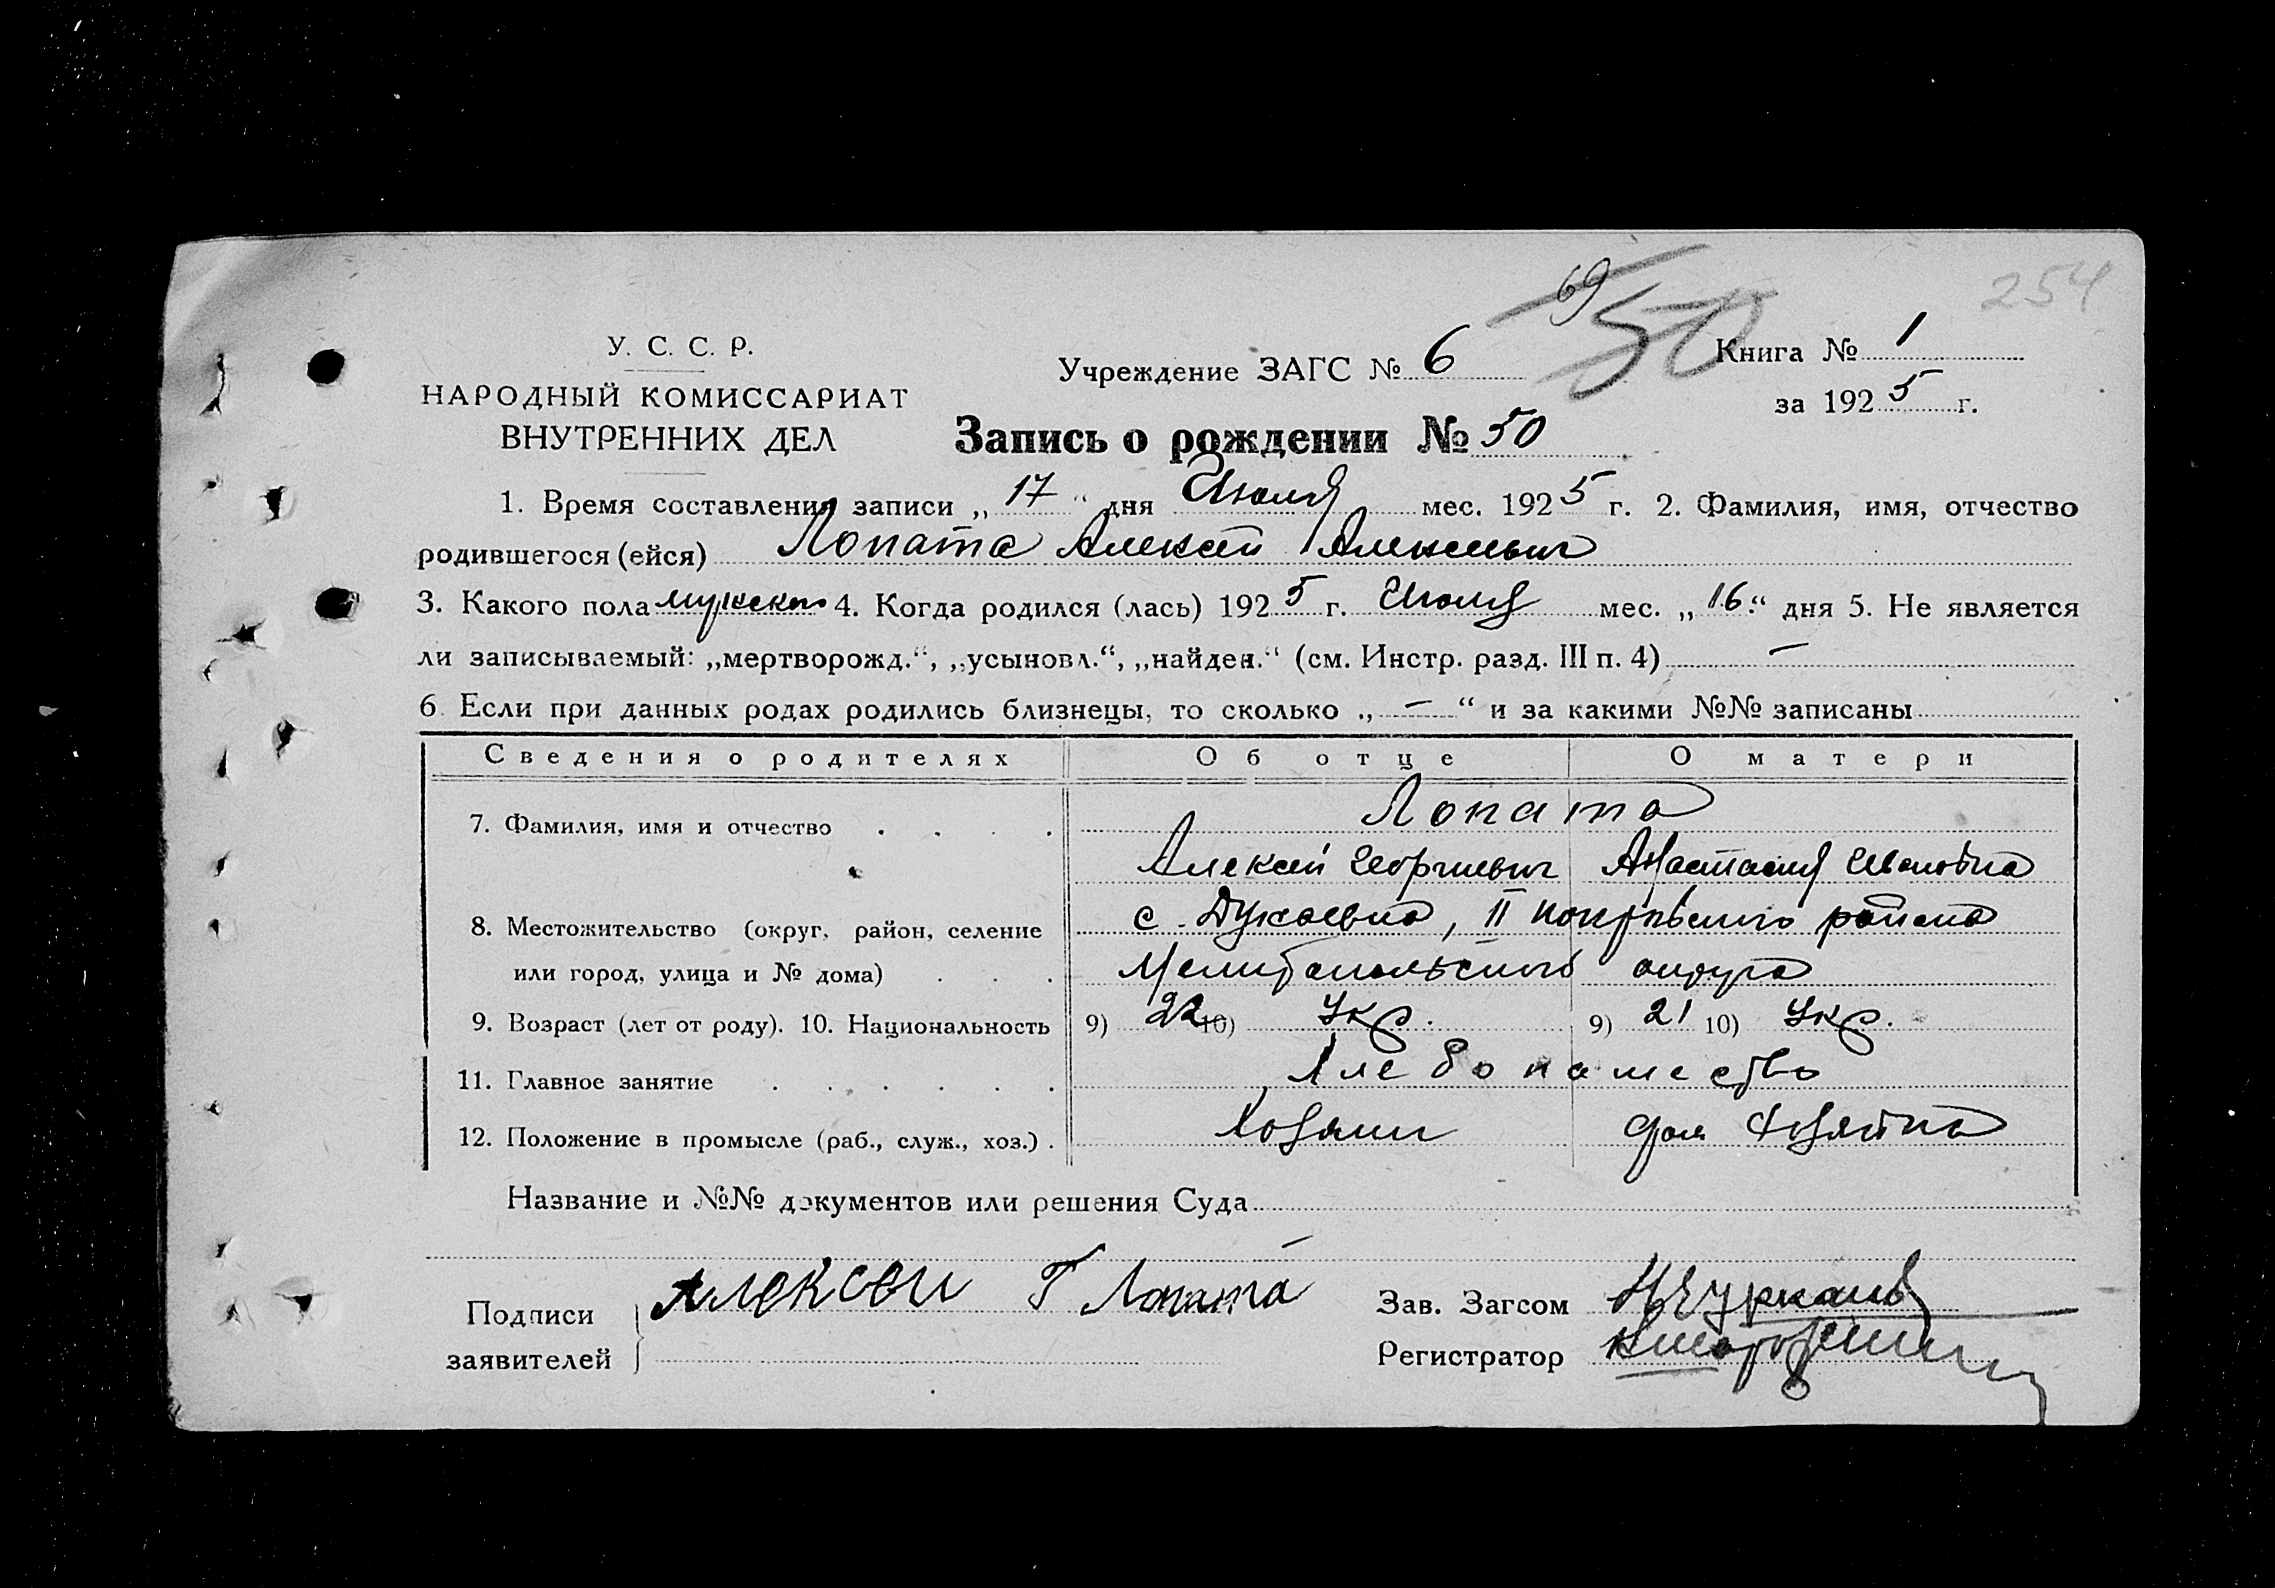 254
69
50
У. С. С. Р.
НАРОДНЫЙ КОМИССАРИАТ
ВНУТРЕННИХ ДЕЛ
Учреждение ЗАГС № 6
Книга № 1
за 1925 г.
Запись о рождении № 50
1. Время составления записи „17“ дня Июля мес. 1925 г. 2. Фамилия, имя, отчество
родившегося (ейся) Лопата Алексей Алексеевич
3. Какого пола мужского 4. Когда родился (лась) 1925 г. Июля мес. „16“ дня 5. Не является
ли записываемый: „мертворожд.“, „усыновл.“, „найден.“ (см. Инстр. разд. III п. 4) —
6. Если при данных родах родились близнецы, то сколько „—“ и за какими №№ записаны
Сведения о родителях Об отце О матери
7. Фамилия, имя и отчество . . . . Лопата
Алексей Георгиевич Анастасия Ивановна
8. Местожительство (округ, район, селение с. , II Покровского района
или город, улица и № дома) . . . Мелитопольского округа
9. Возраст (лет от роду). 10. Национальность 9) 22 10) Укр. 9) 21 10) Укр.
11. Главное занятие . . . . . . Хлебопашество
12. Положение в промысле (раб., служ., хоз.) . Хозяин дом хозяйка
Название и №№ документов или решения Суда
—
Подписи Алексей Г Лопата
заявителей
Зав. Загсом
Регистратор